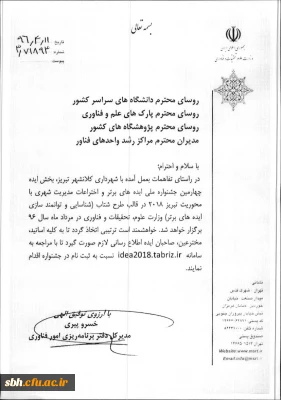 بسمه تعالی
تاریخ ۹۶,۴,۱۱
۳٫۷۱۸۹۳
پیوست
جمهوری اسلامی ایران
روسای محترم دانشگاه های سراسر کشور
روسای محترم پارک های علم و فناوری
روسای محترم پژوهشگاه های کشور
مدیران محترم مراکز رشد واحدهای فناور
با سلام و احترام؛
در راستای تفاهمات بعمل آمده با شهرداری کلانشهر تبریز، بخش ایده
چهارمین جشنواره ملی ایده های برتر و اختراعات مدیریت شهری با
محوریت تبریز ۲۰۱۸ در قالب طرح شتاب (شناسایی و توانمند سازی
ایده های برتر) وزارت علوم، تحقیقات و فناوری در مرداد ماه سال ۹۶
برگزار خواهد شد. خواهشمند است ترتیبی اتخاذ گردد تا به کلیه اساتید،
مخترعین، صاحبان ایده اطلاع رسانی لازم صورت گیرد تا با مراجعه به
سامانه idea2018.tabriz.ir نسبت به ثبت نام در جشنواره اقدام
نمایند.
با آرزوی توفیق الهی
خسرو پیری
مدیرکل دفتر برنامه‌ریزی امور فناوری
نشانی
تهران - شهرک قدس
sbh.cfu.ac.ir